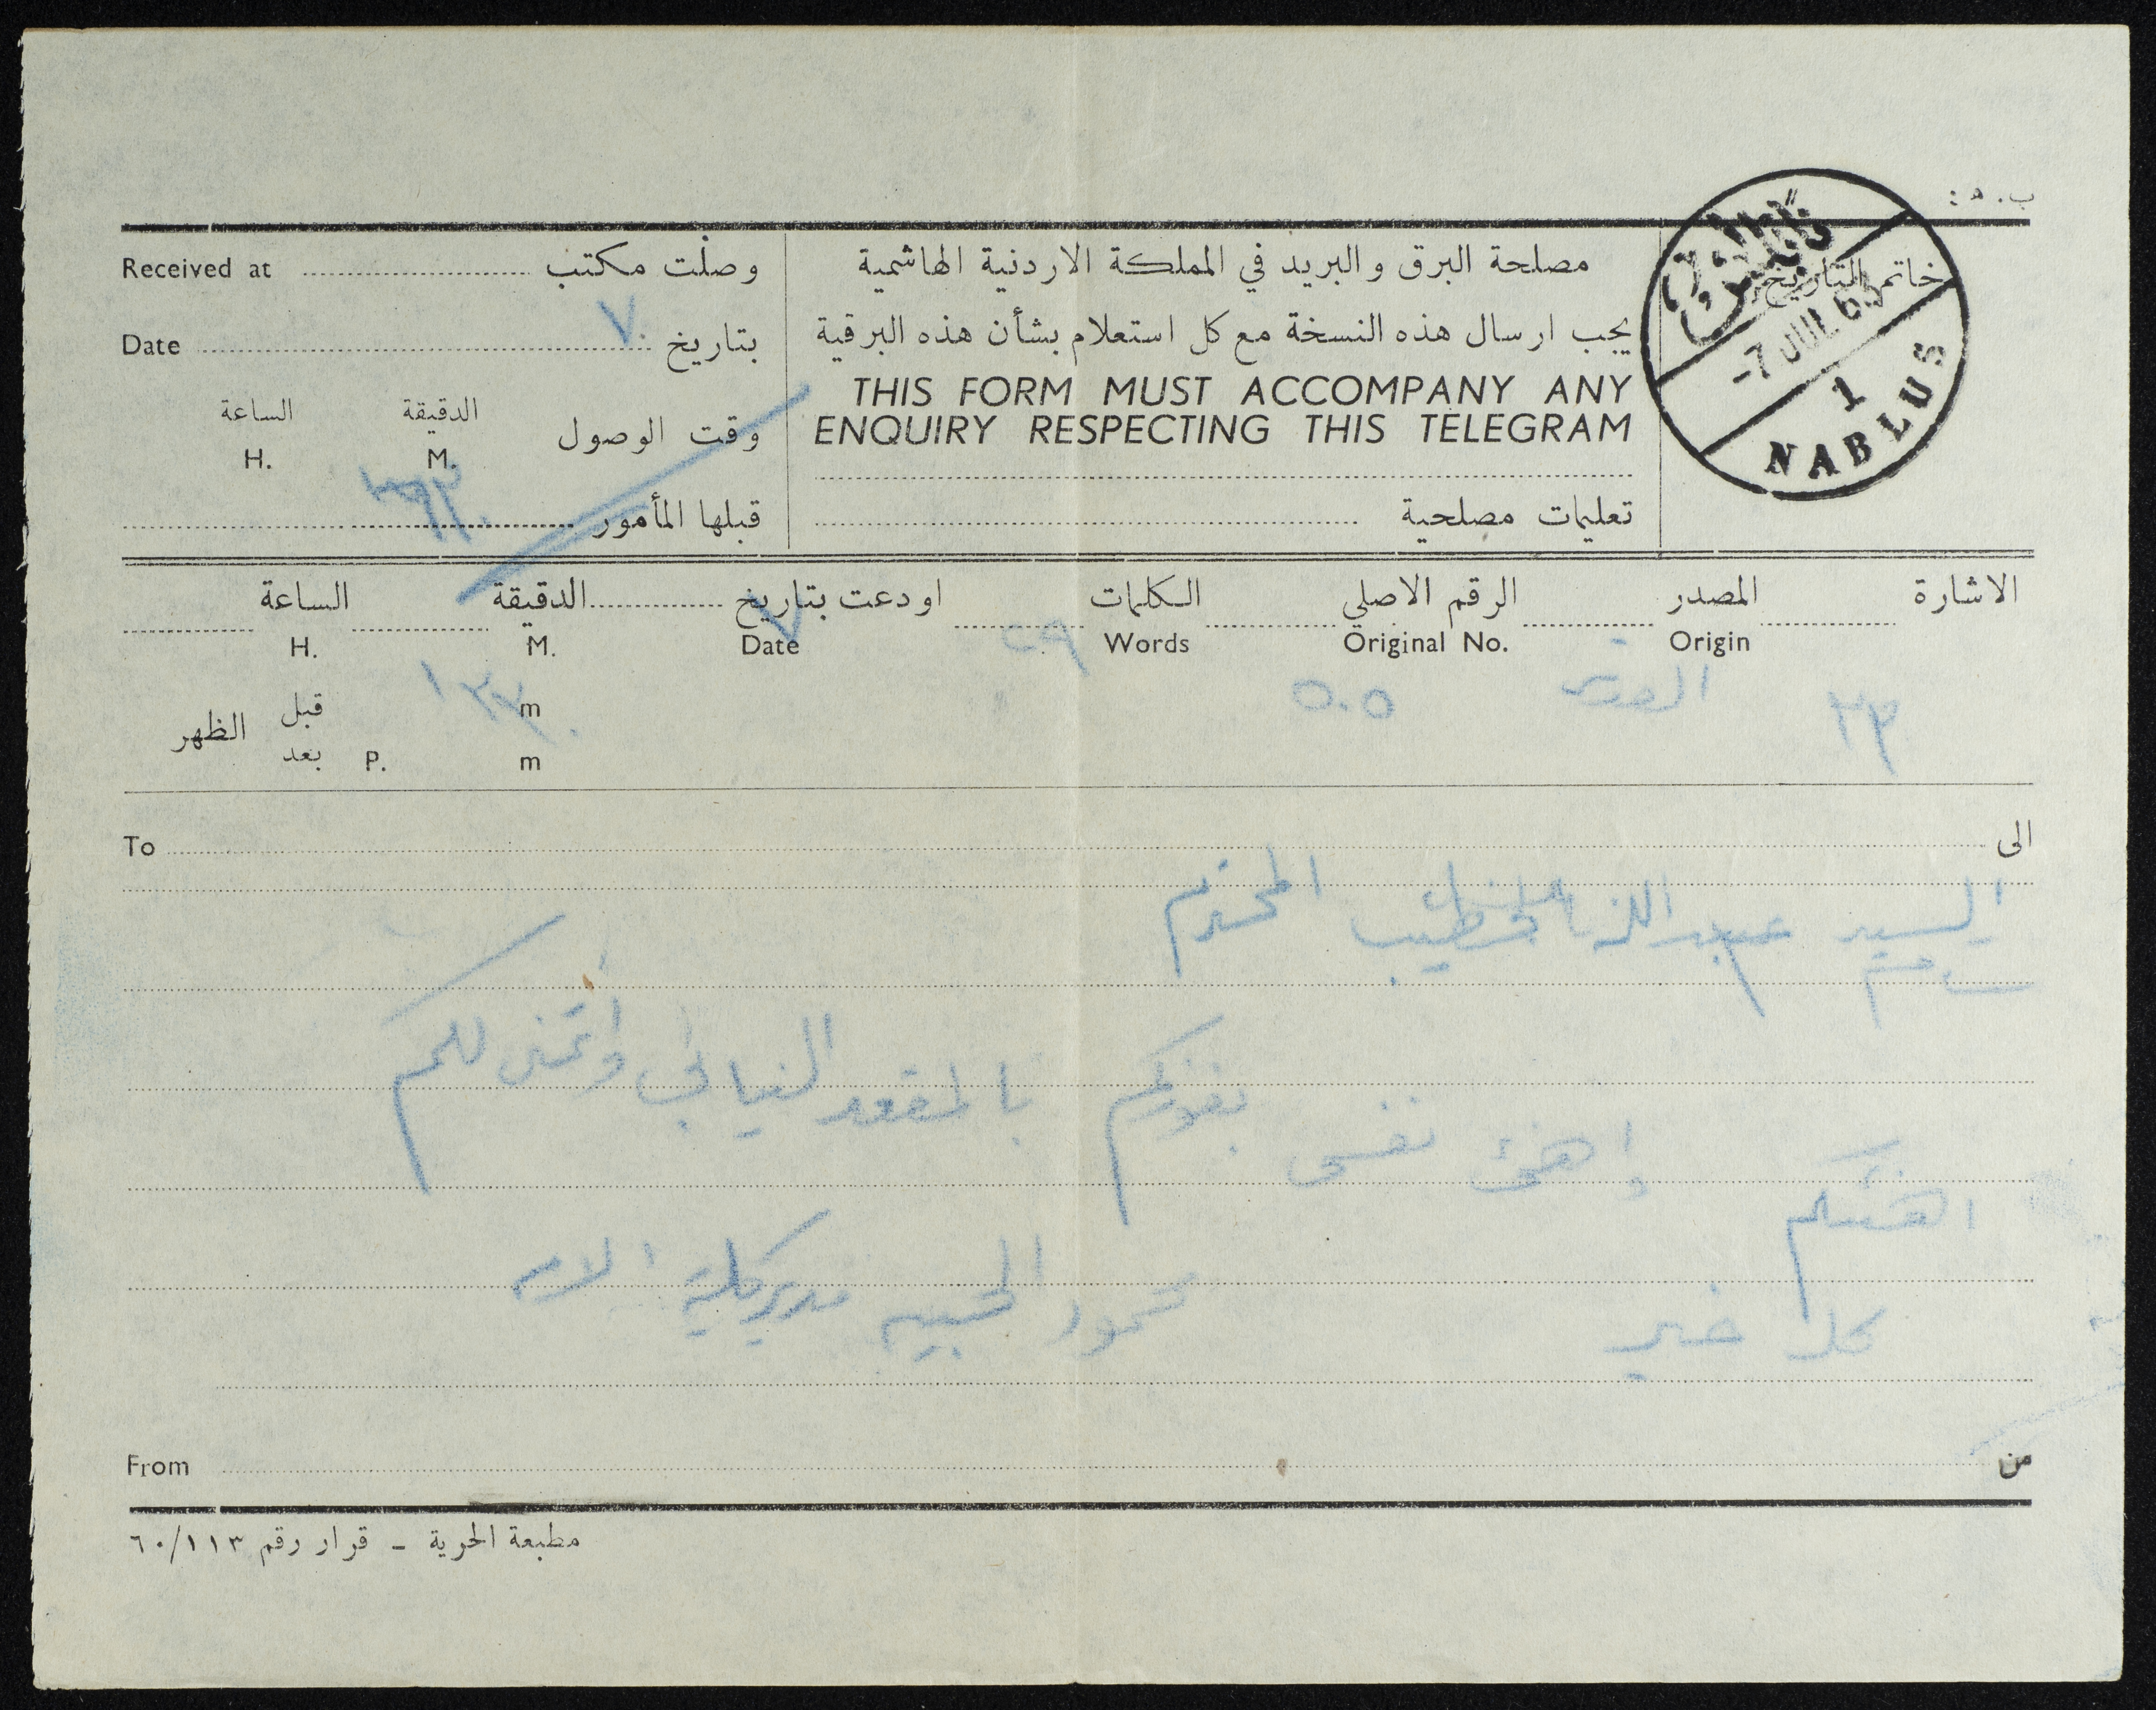 ب. ٥ :
وصلت مكتب Received at
بتاريخ ٧ Date
الساعة الدقيقة
وقت الوصول
H. M.
قبلها المأمور
مصلحة البرق والبريد في المملكة الاردنية الهاشمية
يجب ارسال هذه النسخة مع كل استعلام بشأن هذه البرقية
THIS FORM MUST ACCOMPANY ANY
ENQUIRY RESPECTING THIS TELEGRAM
تعليمات مصلحية
خاتم التاريخ
نابلس
-7 JUL 63
1
NABLUS
الاشارة المصدر الرقم الاصلي الكلمات اودعت بتاريخ الدقيقة الساعة
Origin Original No. Words Date M. H.
٢٣ القدس ٥٠٥ ٢٩ ٧
قبل m
الظهر
بعد P. m
الى To
السيد عبد الله الخطيب المحترم
اهنئكم واهنئ نفسي بفوزكم بالمقعد النيابي واتمنى لكم
كل خير
محمود مدير كلية الامة
من From
مطبعة الحرية - قرار رقم ٦٠/١١٣